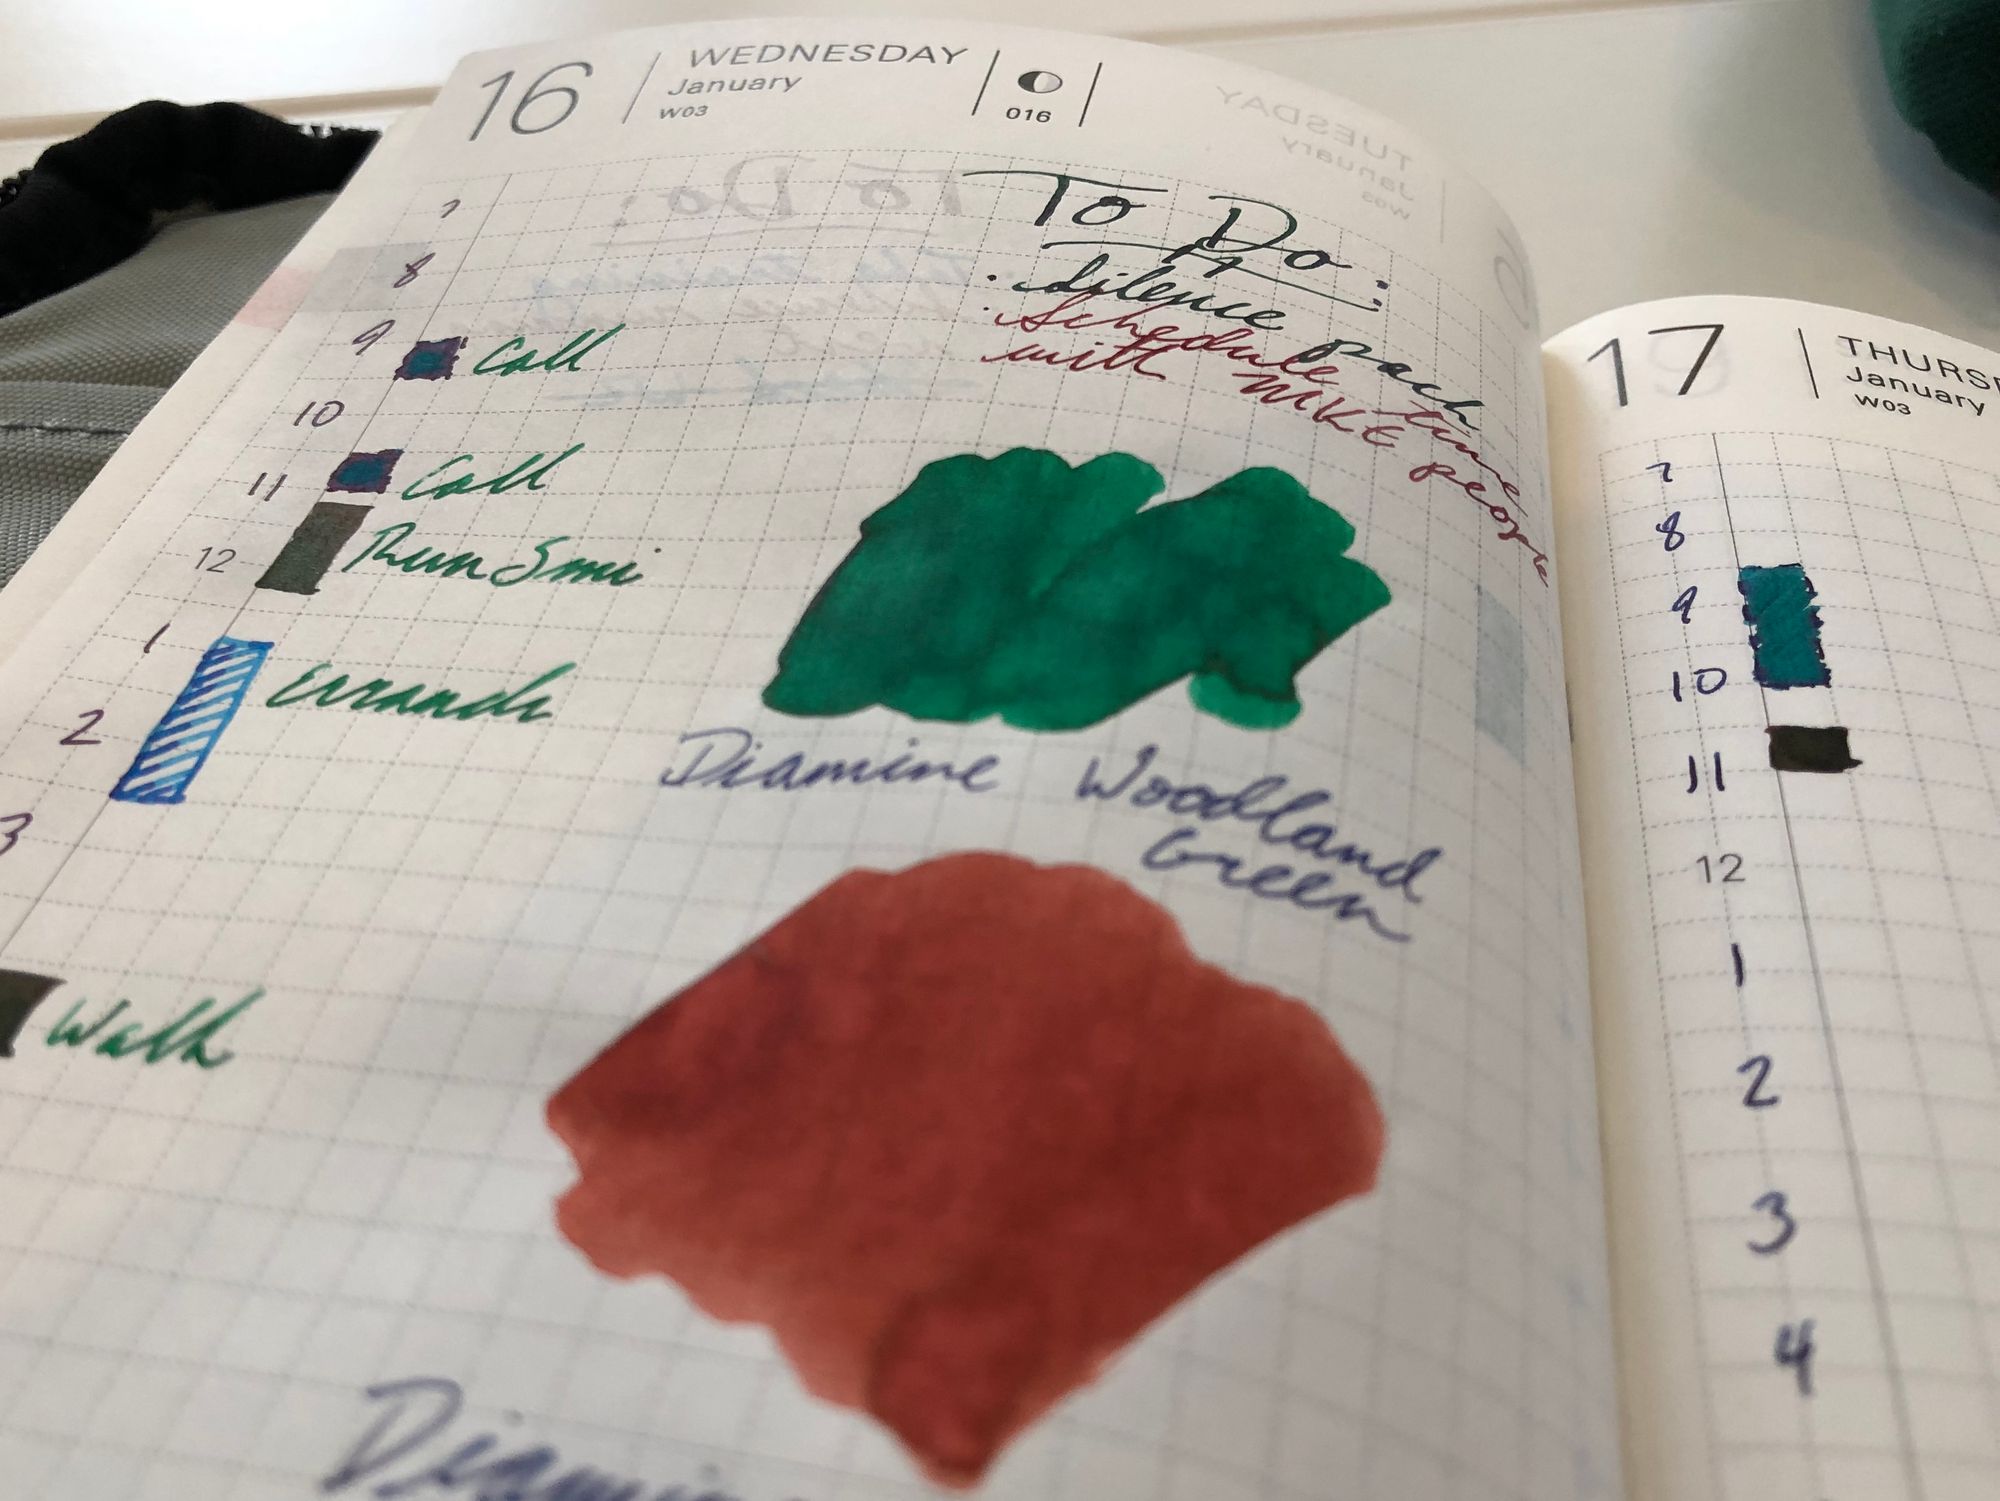 16 WEDNESDAY
January
W03
016
TUESDAY
January
W03
To Do:
To Do:
· Silence pack
· Schedule time
with MKE people
7
8
9 Call
10
11 Call
12 Run 5mi
1
2 Errands
3
Walk
Diamine Woodland
Green
Diamin
17 THURS
January
W03
7
8
9
10
11
12
1
2
3
4